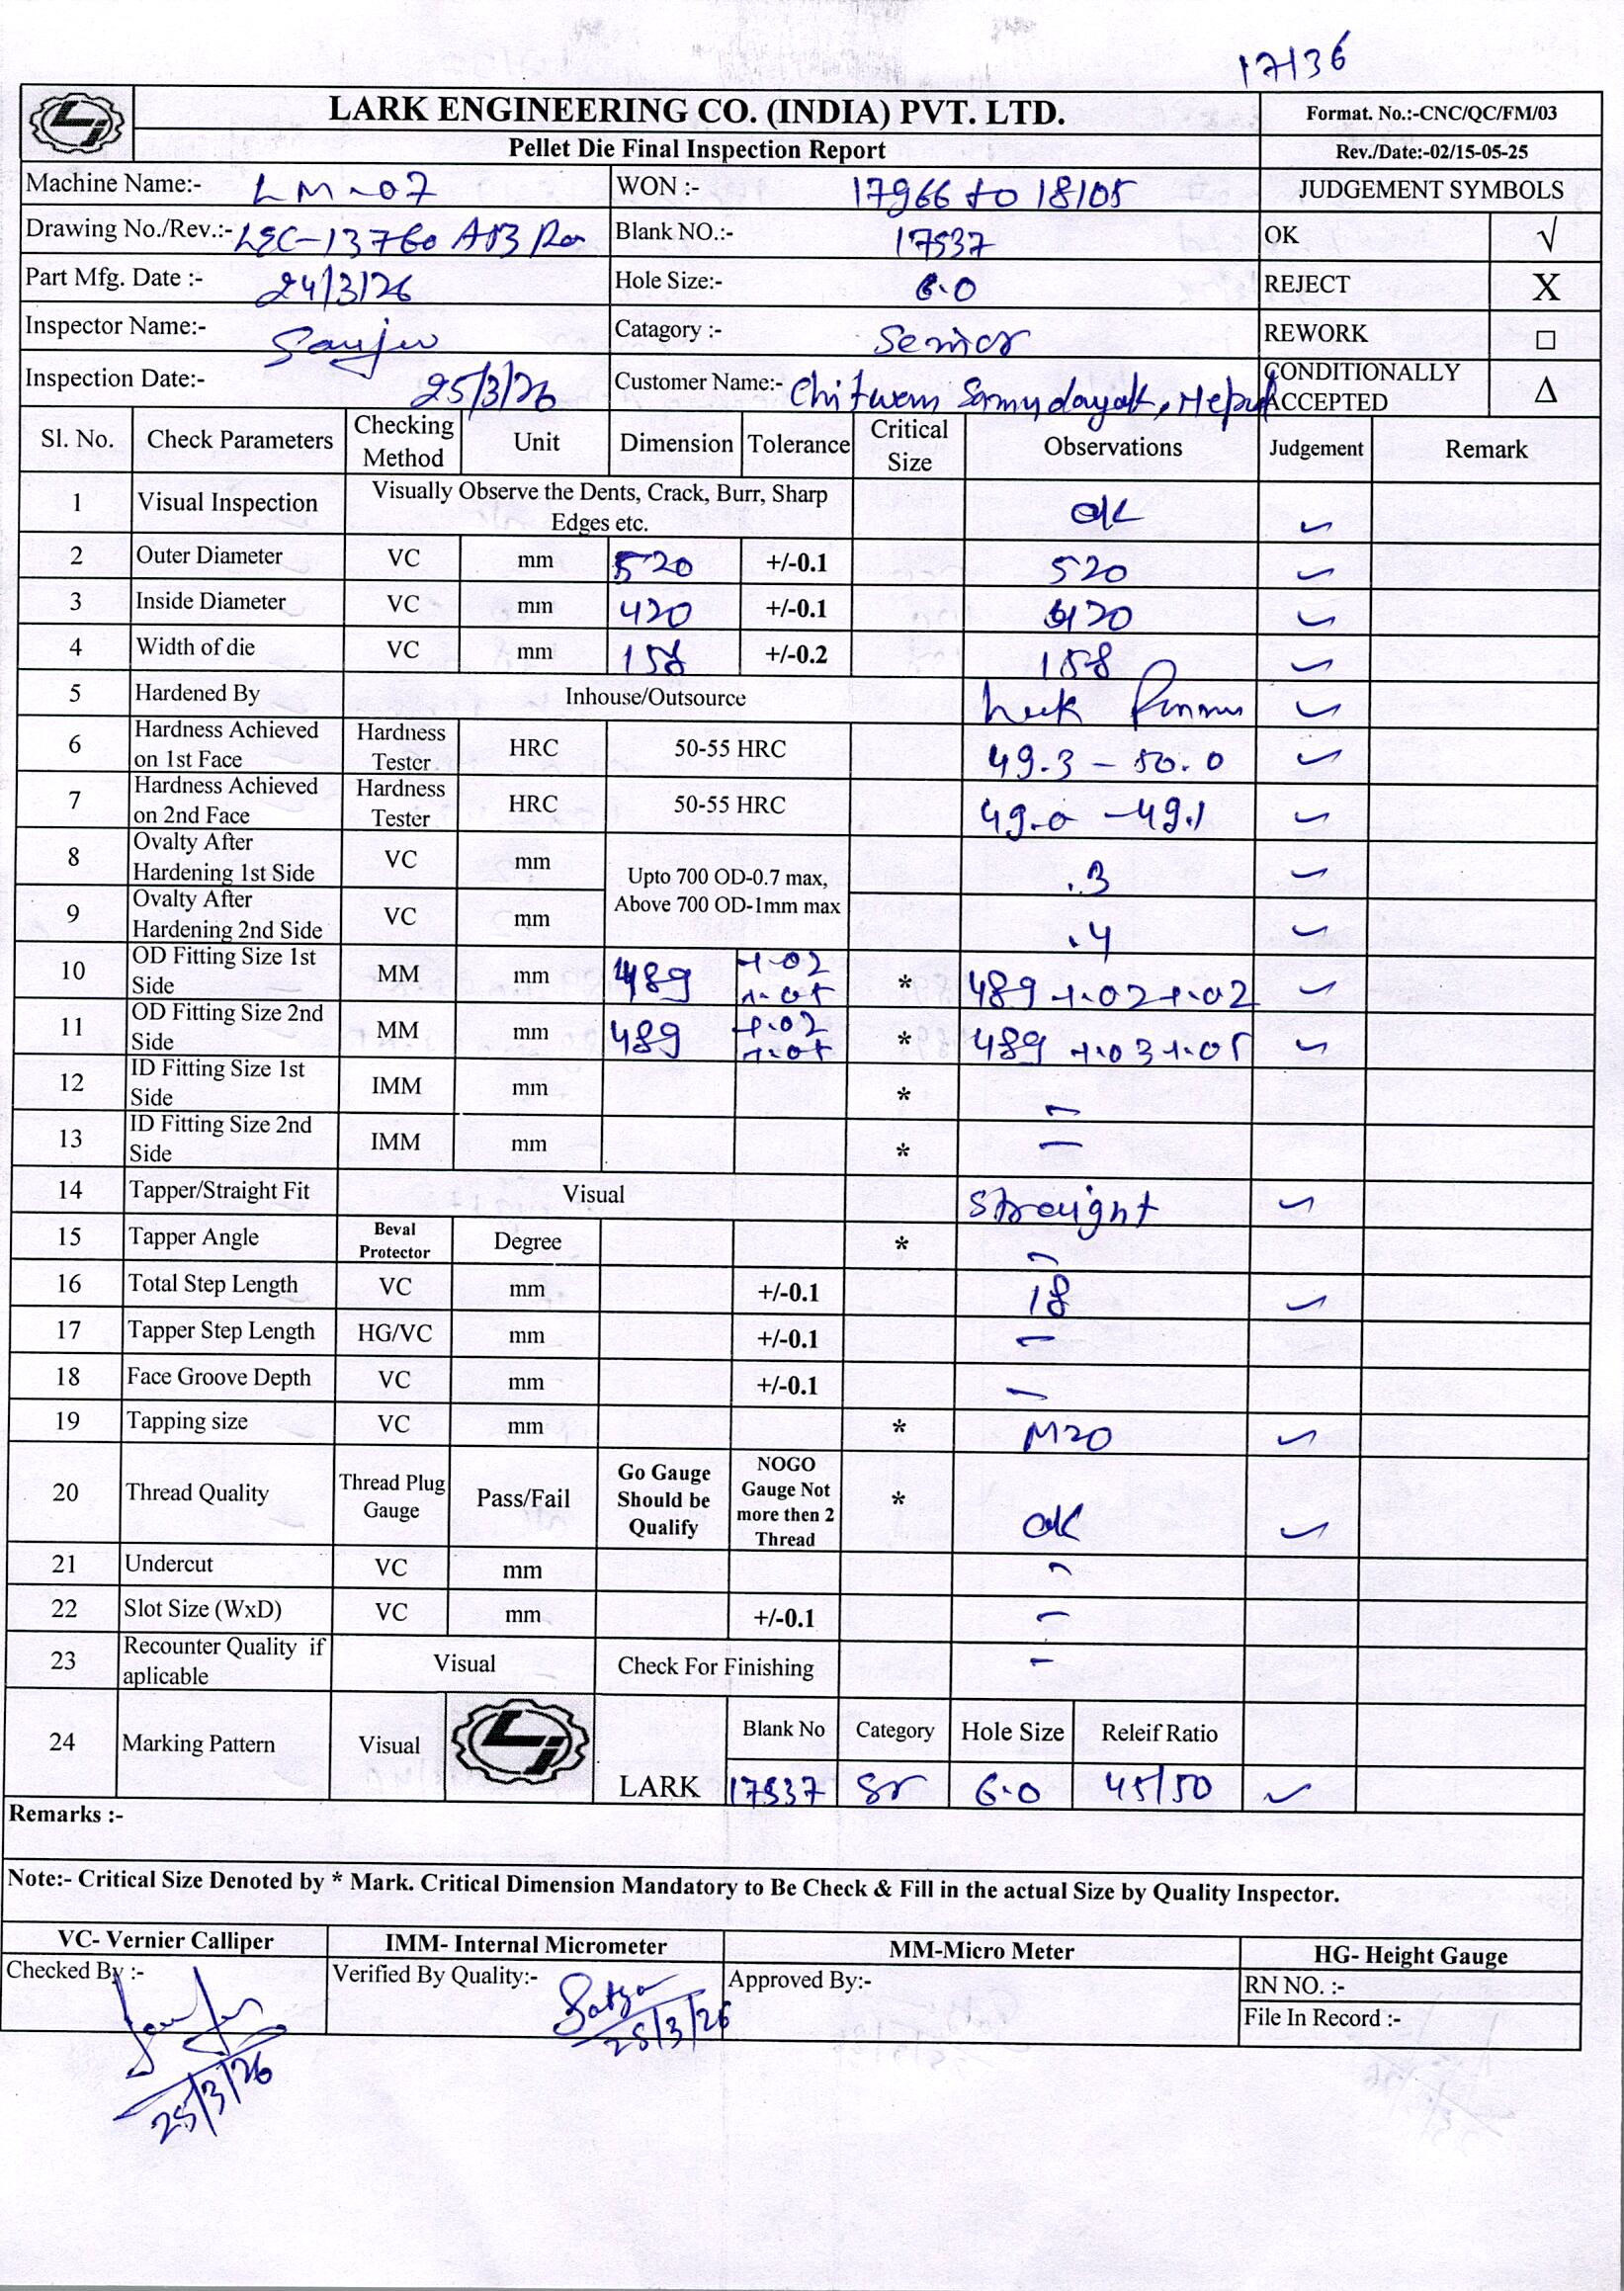 17136
LARK ENGINEERING CO. (INDIA) PVT. LTD.
Format. No.:-CNC/QC/FM/03
Pellet Die Final Inspection Report
Rev./Date:-02/15-05-25
Machine Name:- LM-07 WON :- 17966 to 18105 JUDGEMENT SYMBOLS
Drawing No./Rev.:- LEC-13760 Blank NO.:- 17537 OK √
Part Mfg. Date :- 24/3/26 Hole Size:- 6.0 REJECT X
Inspector Name:- Sanjeev Catagory :- Senior REWORK □
Inspection Date:- 25/3/26 Customer Name:- Chitwan Samudayak, Nepal CONDITIONALLY ACCEPTED Δ
Sl. No. Check Parameters Checking Method Unit Dimension Tolerance Critical Size Observations Judgement Remark
1 Visual Inspection Visually Observe the Dents, Crack, Burr, Sharp Edges etc. OK ✓
2 Outer Diameter VC mm 520 +/-0.1 520 ✓
3 Inside Diameter VC mm 420 +/-0.1 420 ✓
4 Width of die VC mm 158 +/-0.2 158 ✓
5 Hardened By Inhouse/Outsource ✓
6 Hardness Achieved on 1st Face Hardness Tester HRC 50-55 HRC 49.3 - 50.0 ✓
7 Hardness Achieved on 2nd Face Hardness Tester HRC 50-55 HRC 49.0 - 49.1 ✓
8 Ovalty After Hardening 1st Side VC mm Upto 700 OD-0.7 max, Above 700 OD-1mm max .3 ✓
9 Ovalty After Hardening 2nd Side VC mm .4 ✓
10 OD Fitting Size 1st Side MM mm 489 +.02 +.05 * 489 +.02 +.02 ✓
11 OD Fitting Size 2nd Side MM mm 489 +.02 +.05 * 489 +.03 +.05 ✓
12 ID Fitting Size 1st Side IMM mm * -
13 ID Fitting Size 2nd Side IMM mm * -
14 Tapper/Straight Fit Visual Straight ✓
15 Tapper Angle Beval Protector Degree * -
16 Total Step Length VC mm +/-0.1 18 ✓
17 Tapper Step Length HG/VC mm +/-0.1 -
18 Face Groove Depth VC mm +/-0.1 -
19 Tapping size VC mm * M20 ✓
20 Thread Quality Thread Plug Gauge Pass/Fail Go Gauge Should be Qualify NOGO Gauge Not more then 2 Thread * OK ✓
21 Undercut VC mm -
22 Slot Size (WxD) VC mm +/-0.1 -
23 Recounter Quality if aplicable Visual Check For Finishing -
24 Marking Pattern Visual LARK Blank No Category Hole Size Releif Ratio
17537 Sr 6.0 45/50 ✓
Remarks :-
Note:- Critical Size Denoted by * Mark. Critical Dimension Mandatory to Be Check & Fill in the actual Size by Quality Inspector.
VC- Vernier Calliper IMM- Internal Micrometer MM-Micro Meter HG- Height Gauge
Checked By :- Verified By Quality:- Satya Approved By:- RN NO. :-
25/3/26 File In Record :-
25/3/26